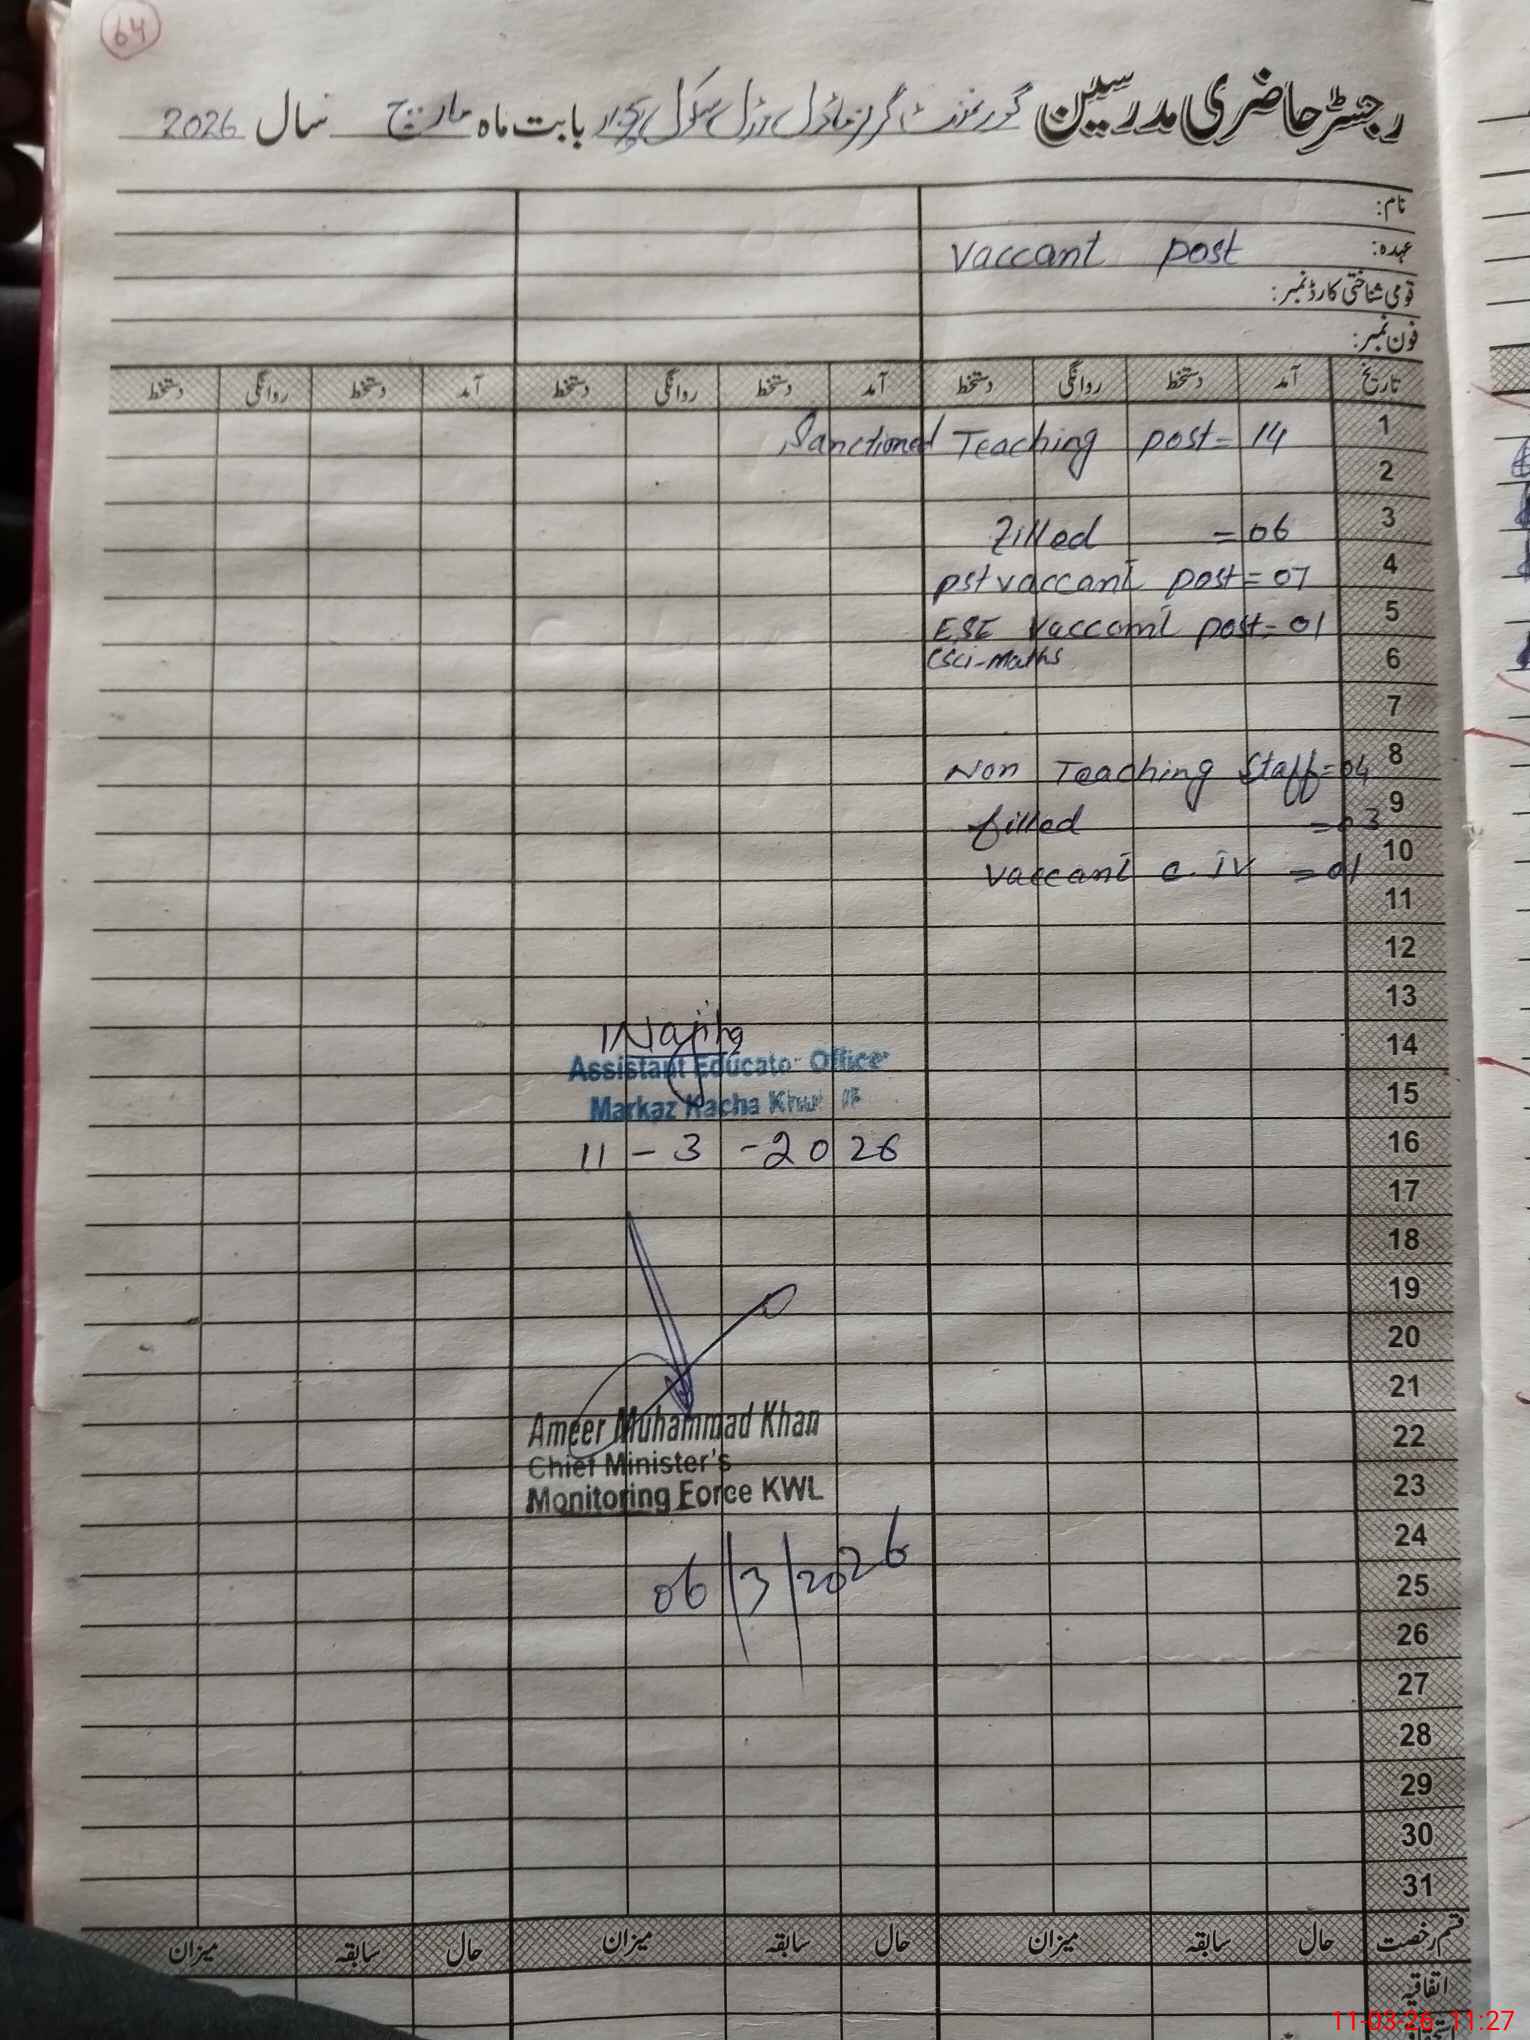 64
رجسٹر حاضری مدرسین گورنمنٹ گرلز ماڈل مڈل سکول بابت ماہ مارچ سال 2026
نام:
عہدہ: Vaccant post
قومی شناختی کارڈ نمبر:
فون نمبر:
تاریخ آمد دستخط روانگی دستخط آمد دستخط روانگی دستخط آمد دستخط روانگی دستخط
1 Sanctioned Teaching post = 14
2
3 Filled = 06
4 pst vaccant post = 07
5 ESE vaccant post = 01
6 (Sci-Maths
7
8 Non Teaching Staff = 04
9 filled = 03
10 vaccant c. iv = 01
11
12
13
14
Assistant Educator Officer
15
Markaz Kacha Khuh
16 11-3-2026
17
18
19
20
21
22 Ameer Muhammad Khan
Chief Minister's
23 Monitoring Force KWL
24
25 06/3/2026
26
27
28
29
30
31
قسم رخصت حال سابقہ میزان حال سابقہ میزان حال سابقہ میزان
اتفاقیہ
11-03-26 11:27